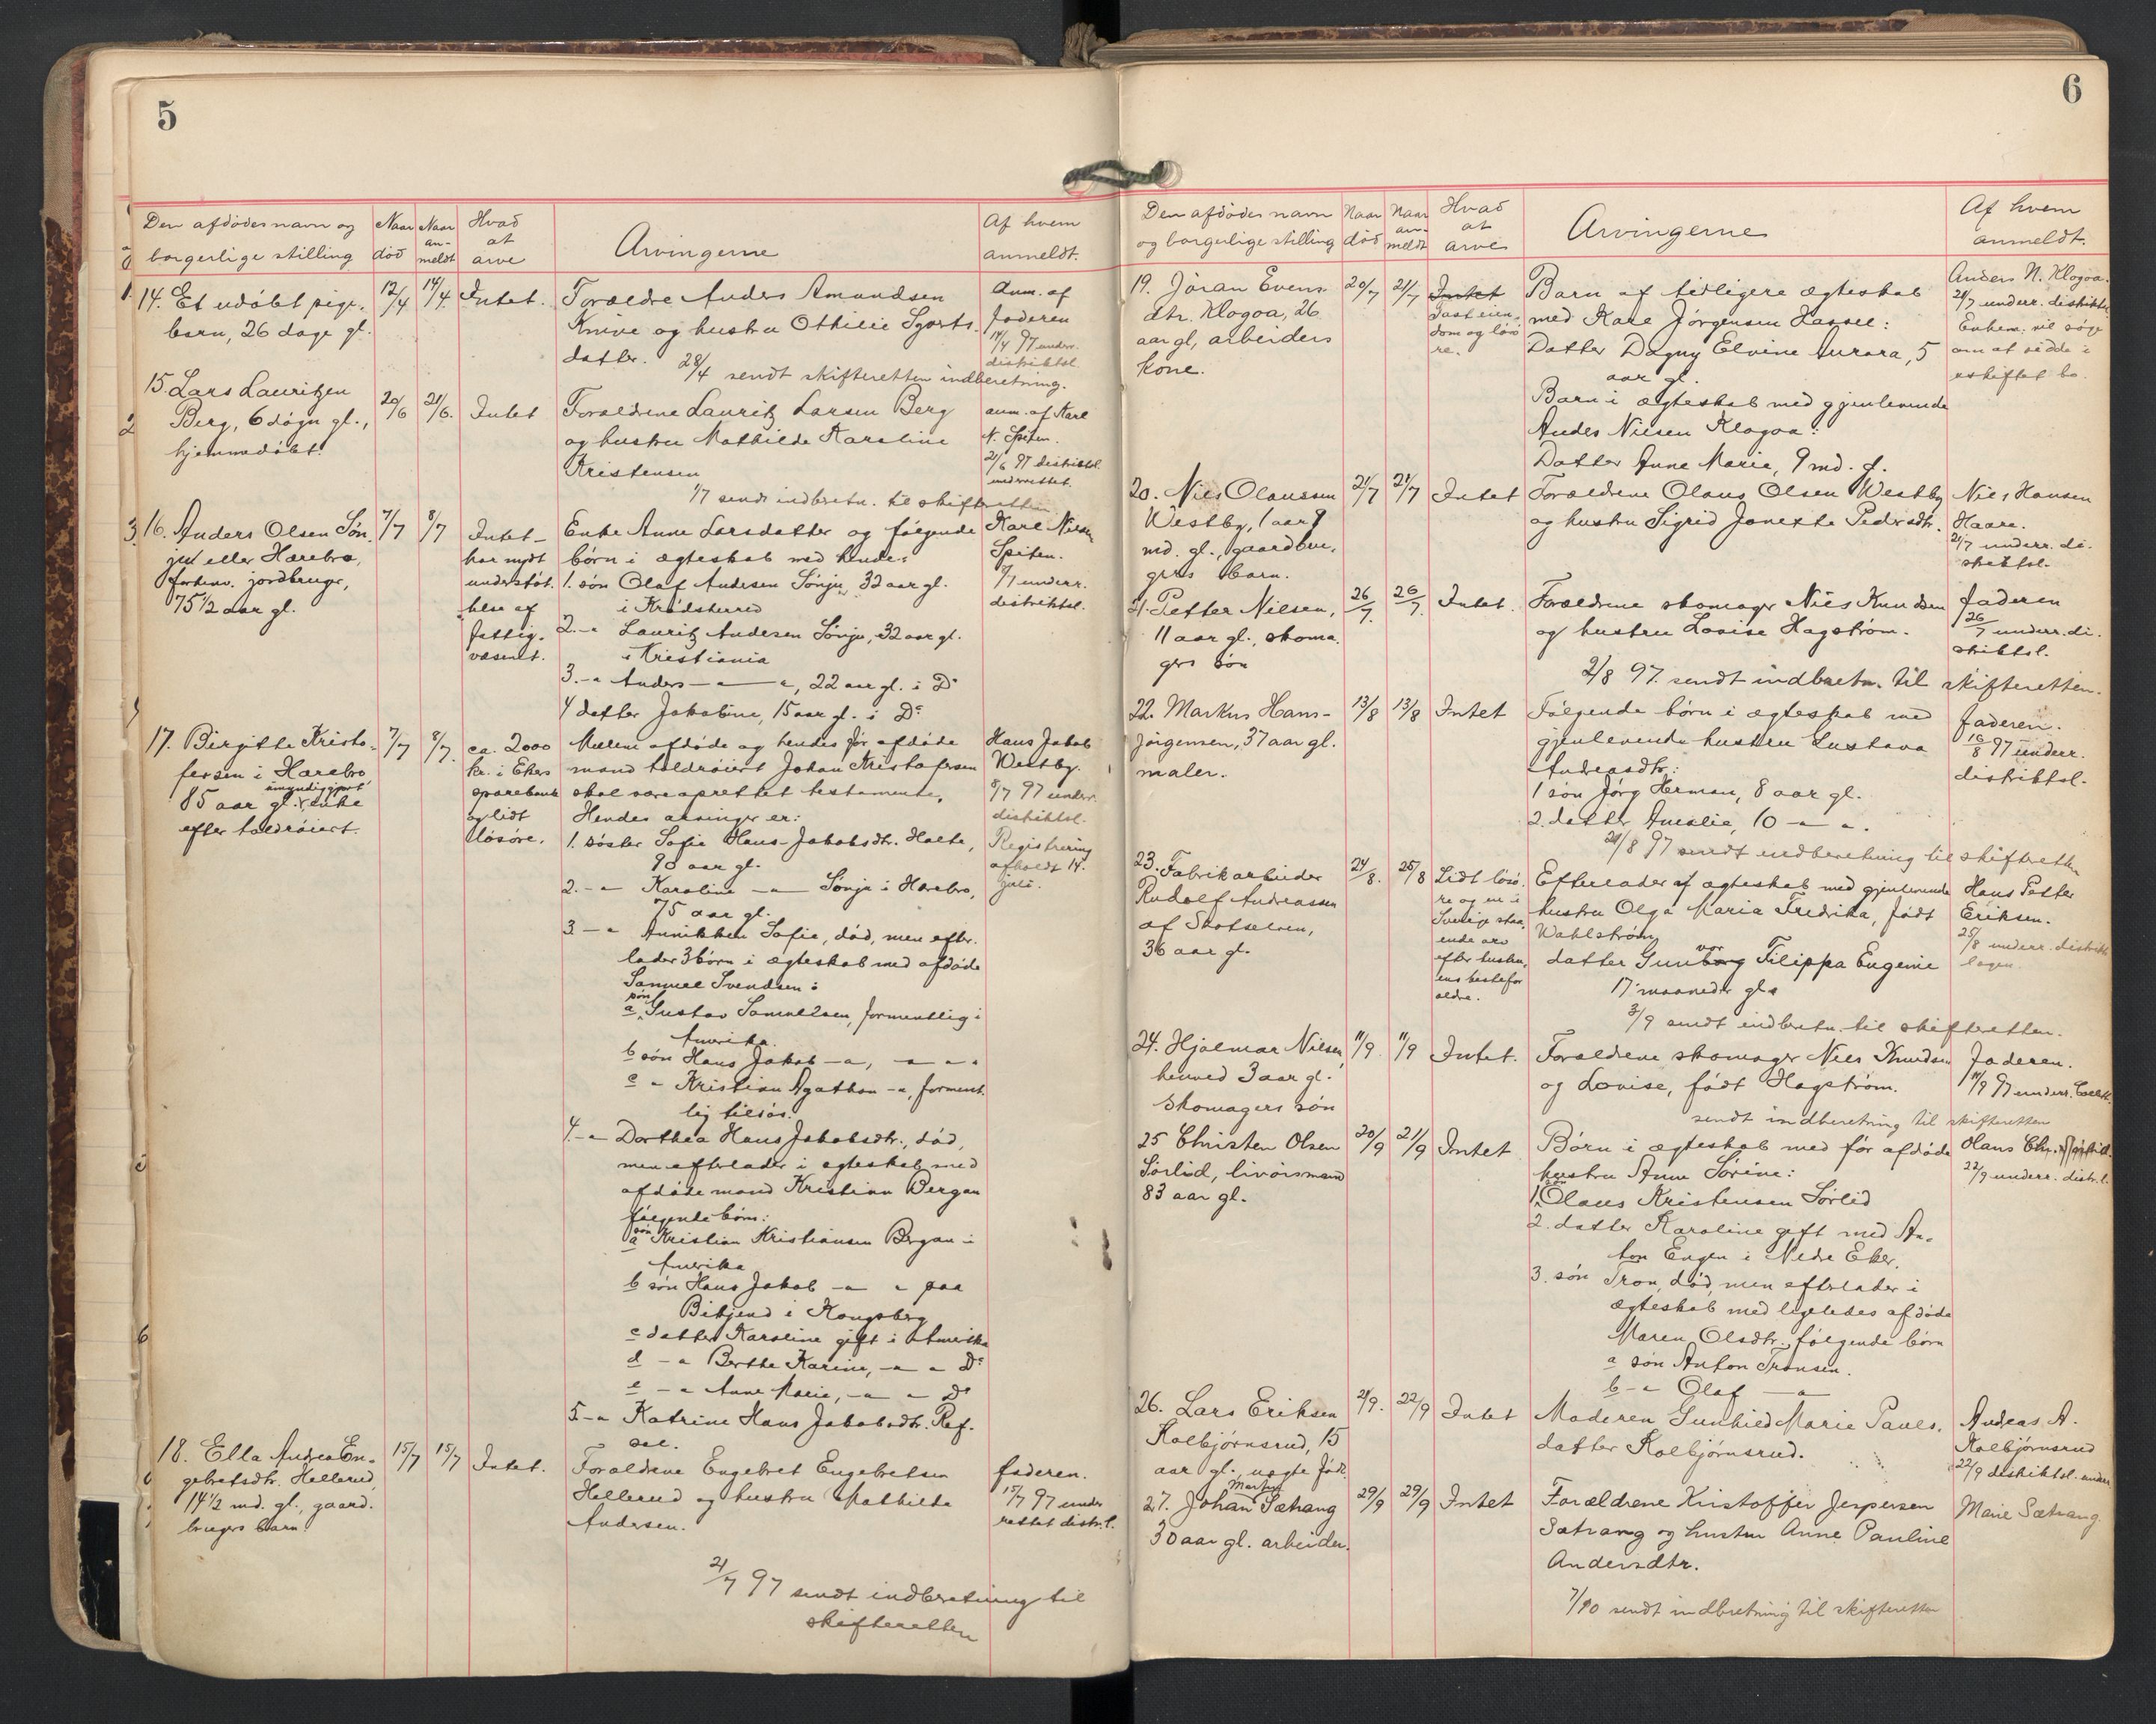 5
Den afdødes navn og
borgerlige stilling
Naar
død
Naar
an-
meldt
Hvad
at
arve
Arvingerne
Af hvem
anmeldt.
14. Et udøbt pige-
barn, 26 dage gl.
12/4
14/4
Intet.
Forældre Anders Amundsen
Knive og hustru Othilie
datter.
28/4 sendt skifteretten indberetning.
Anm. af
faderen
14/4 97 underr.
distriktsl.
15. Lars Lauritzen
Berg, 6 døgn gl.,
hjemmedøbt.
20/6
21/6.
Intet
Forældrene Lauritz Larsen Berg
og hustru Mathilde Karoline
Kristensen
1/7 sendt indbretn. til skifteretten
anm. af Karl
N. Spiten.
21/6 97 distriktsl.
underrettet.
16. Anders Olsen Søn-
ju eller Harebro,
forhenv. jordbruger,
75 1/2 aar gl.
7/7
8/7
Intet -
har nydt
understøt-
telse af
fattig-
væsenet.
Enke Anne Larsdatter og følgende
børn i ægteskab med hende:
1. søn Olaf Andersen Sønju, 32 aar gl.
i Krødsherred
2. -"- Lauritz Andersen Sønju, 32 aar gl.
i Kristiania
3. -"- Anders -"- -"-, 22 aar gl. i Do
4 datter Jakobine, 15 aar gl. i Do
Karl Nilsen
Spiten.
8/7 underr.
distriktsl.
17. Birgitte Kristo-
fersen i Harebro,
umyndiggjort
85 aar gl. enke
efter toldrøiert.
7/7
8/7.
ca. 2000
kr. i Ekers
sparebank
og lidt
løsøre.
Mellem afdøde og hendes før afdøde
mand toldrøiert Johan Kristofersen
skal være oprettet testamente,
Hendes arvinger er:
1. søster Sofie Hans-Jakobsdtr. Holte,
90 aar gl.
2. -"- Karoline -"- Sønju i Harebro,
75 aar gl.
3 -"- Annikken Sofie, død, men efter-
lader 3 børn i ægteskab med afdøde
Samuel Svendsen:
a søn Gustav Samuelsen, formentlig i
Amerika.
b søn Hans Jakob -"-, -"- -"-
c -"- Kristian Agathon -"-, forment-
lig tilsjøs.
4. -"- Dorthea Hans Jakobsdtr., død,
men efterlader i egteskab med
afdøde mand Kristian Bergan
følgende børn:
a søn Kristian Kristiansen Bergan i
Amerika
b søn Hans Jakob -"- -"- paa
Bikjend i Kongsberg
c datter Karoline gift i Amerika
d -"- Berthe Karine, -"- -"- Do
e -"- Anne Marie, -"- -"- Do
5 -"- Katrine Hans Jakobsdtr. Raf-
sel.
Hans Jakob
Westby.
8/7 97 underr.
distriktsl.
Registrering
afholdt 14.
juli.
18. Ella Andrea En-
gebretsdtr. Hellerud,
14 1/2 md. gl., gaard-
brugers barn.
15/7
15/7
Intet.
Forældrene Engebret Engebretsen
Hellerud og hustru Mathilde
Andersen.
21/7 97 sendt indberetning til
skifteretten
faderen.
15/7 97 under-
rettet distr.l.
6
Den afdødes navn
og borgerlige stilling
Naar
død
Naar
an-
meldt
Hvad
at
arve
Arvingerne
Af hvem
anmeldt.
19. Jøran Evens-
dtr. Klogoa, 26
aar gl, arbeiders
kone.
20/7
21/7
Intet
Fast eien-
dom og løsø-
re.
Barn af tidligere ægteskab
med Karl Jørgensen Hassel:
Datter Dagny Elvine Aurora, 5
aar gl.
Barn i ægteskab med gjenlevende
Anders Nilsen Klogoa:
Datter Anne Marie, 9 md. g.
Anders N. Klogoa.
21/7 underr. distriktsl.
Enkem. vil søge
om at sidde i
uskiftet bo.
20. Nils Olaussen
Westby, 1 aar 9
md. gl., gaardbru-
gers barn.
21/7
21/7
Intet
Forældrene Olaus Olsen Westby
og hustru Sigrid Jonette Pedersdtr.
Nils Hansen
Haare.
21/7 underr. di-
striktsl.
21. Petter Nilsen,
11 aar gl., skoma-
gers søn
26/7.
26/7.
Intet.
Forældrene skomager Nils Knudsen
og hustru Lovise Hagstrøm.
2/8 97. sendt indbretn. til skifteretten.
Faderen
26/7 underr. di-
striktsl.
22. Markus Hans-
Jørgensen, 37 aar gl.
maler.
13/8
13/8
Intet
Følgende børn i ægteskab med
gjenlevende hustru Gustava
Andreasdtr.:
1 søn Jørg Herman, 8 aar gl.
2. datter Amalie, 10 -"- -"-.
21/8 97 sendt indberetning til skifteretten
Faderen.
16/8 97 underr.
distriktsl.
23. Fabrikarbeider
Rudolf Andreassen
af Skotselven,
36 aar gl.
24/8.
25/8
Lidt løsø-
re og en i
Sverige staa-
ende arv
efter hustru-
ens bestefor-
ældre.
Efterlader af ægteskab med gjenlevende
hustru Olga Maria Fredrika, født
Wahlstrøm,
datter Gunborg vor Filippa Eugenie
17 maaneder gl.
3/9 sendt indbretn. til skifteretten.
Hans Petter
Eriksen.
25/8 underr. distrikts-
lagen.
24. Hjalmar Nilsen,
henved 3 aar gl.
Skomagers søn
11/9.
11/9
Intet.
Forældrene skomager Nils Knudsen
og Lovise, født Hagstrøm.
sendt indberetning til skifteretten
Faderen.
11/9 97 underr.
25 Christen Olsen
Sørlid, livøismand
83 aar gl.
20/9
21/9
Intet
Børn i ægteskab med før afdøde
hustru Anne Sørine:
1. søn Olaus Kristensen Sørlid
2. datter Karoline gift med An-
ton Engen i Nedre Eker.
3. søn Tron, død, men efterlader i
ægteskab med ligeledes afdøde
Maren Olsdtr., følgende børn
a søn Anton Tronsen.
b -"- Olaf -"-
Hans
22/9 underr. distr.l.
26. Lars Eriksen
Kolbjørnsrud, 15
aar gl., uægte født.
21/9.
22/9
Intet
Moderen Gunhild Marie Pauls-
datter Kolbjørnsrud.
Andreas A.
Kolbjørnsrud
22/9 distriktsl. underr.
27. Johan Martin Sætrang
30 aar gl. arbeider.
29/9
29/9
Intet
Forældrene Kristoffer Jespersen
Sætrang og hustru Anne Pauline
Andersdtr.
7/10 sendt indbretning til skifteretten
Marie Sætrang.